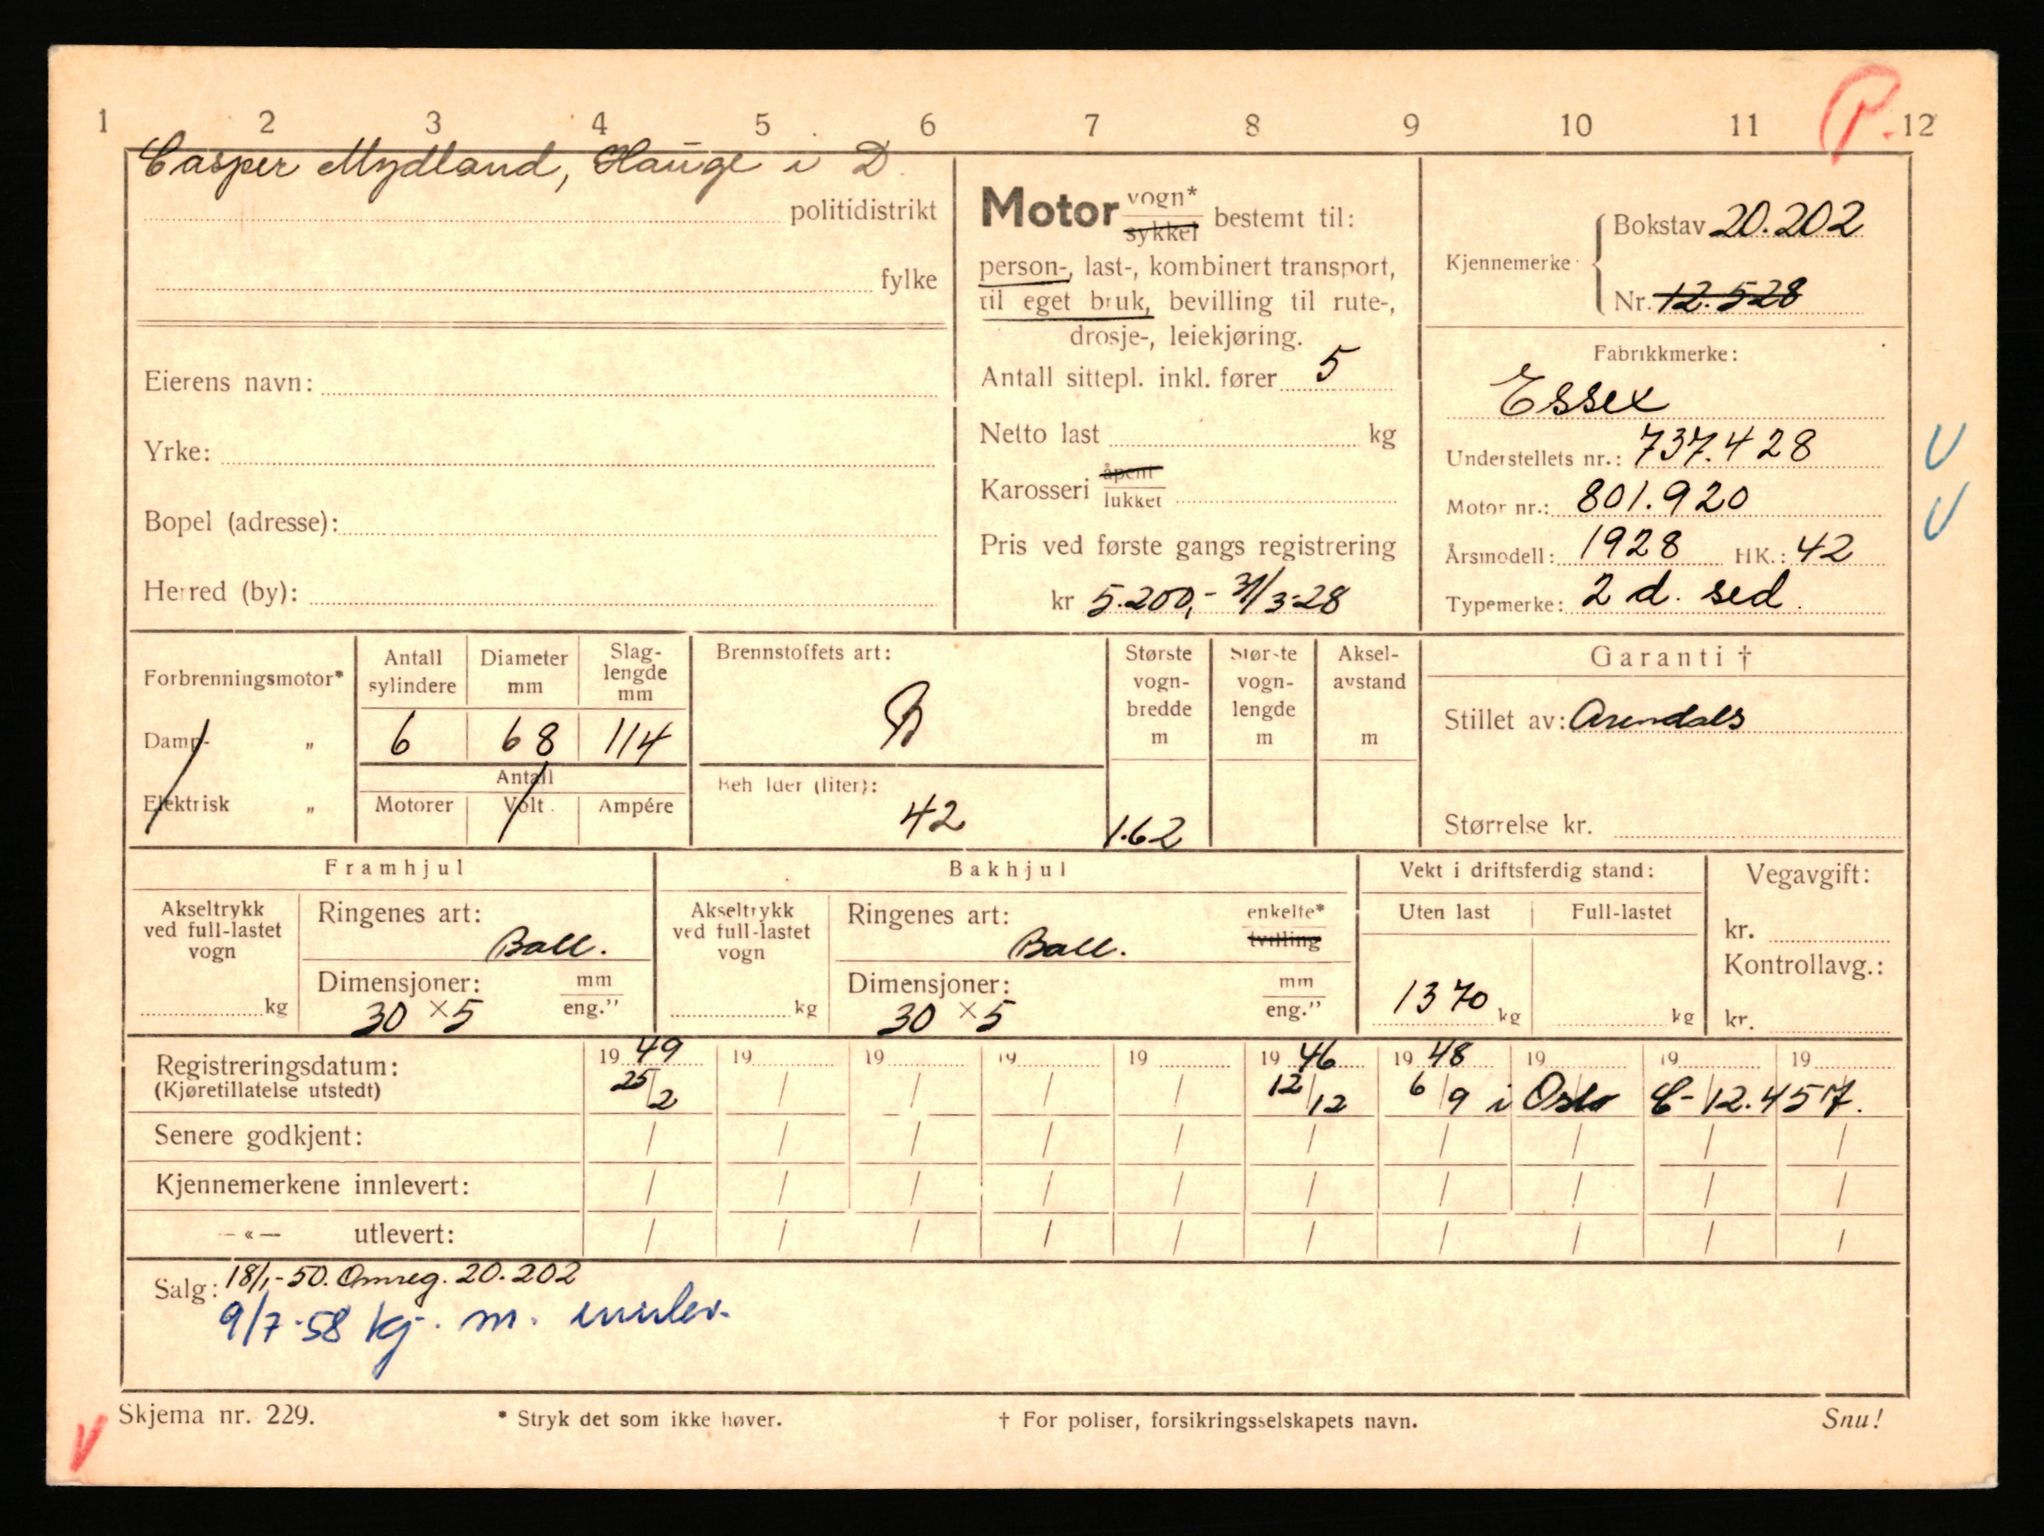 1 2 3 4 5 6 7 8 9 10 11 P. 12
Casper Mydland, Hauge i D.
politidistrikt
fylke
Eierens navn:
Yrke:
Bopel (adresse):
Herred (by):
Motor vogn* sykkel bestemt til:
person-, last-, kombinert transport,
til eget bruk, bevilling til rute-,
drosje-, leiekjøring.
Antall sittepl. inkl. fører 5
Netto last kg
Karosseri åpent lukket
Pris ved første gangs registrering
kr 5.200,- 31/3-28
Kjennemerke Bokstav 20.202
Nr. 12.528
Fabrikkmerke:
Essex
Understellets nr.: 737.428 V
Motor nr.: 801.920 V
Årsmodell: 1928 HK.: 42
Typemerke: 2 d. sed.
Forbrenningsmotor*
Damp- „
Elektrisk „
Antall sylindere
Diameter mm
Slag-lengde mm
6 68 114
Antall
Motorer Volt Ampére
Brennstoffets art:
B
Beholder (liter):
42
Største vogn-bredde m
Største vogn-lengde m
Aksel-avstand m
1.62
Garanti †
Stillet av: Arendals
Størrelse kr.
Framhjul
Akseltrykk ved full-lastet vogn
kg
Ringenes art:
Ball.
Dimensjoner: mm eng."
30 × 5
Bakhjul
Akseltrykk ved full-lastet vogn
kg
Ringenes art: enkelte* tvilling
Ball.
Dimensjoner: mm eng."
30 × 5
Vekt i driftsferdig stand:
Uten last Full-lastet
1370 kg kg
Vegavgift:
kr.
Kontrollavg.:
kr.
Registreringsdatum: 1949 19 19 19 19 1946 1948 19 19 19
(Kjøretillatelse utstedt) 25/2 / / / / 12/12 6/9 i Oslo C-12.457.
Senere godkjent: / / / / / / / / / /
Kjennemerkene innlevert: / / / / / / / / / /
— « — utlevert: / / / / / / / / / /
Salg: 18/1-50. Omreg. 20.202
9/7-58 kj. m. innlev.
V Skjema nr. 229. * Stryk det som ikke høver. † For poliser, forsikringsselskapets navn. Snu!